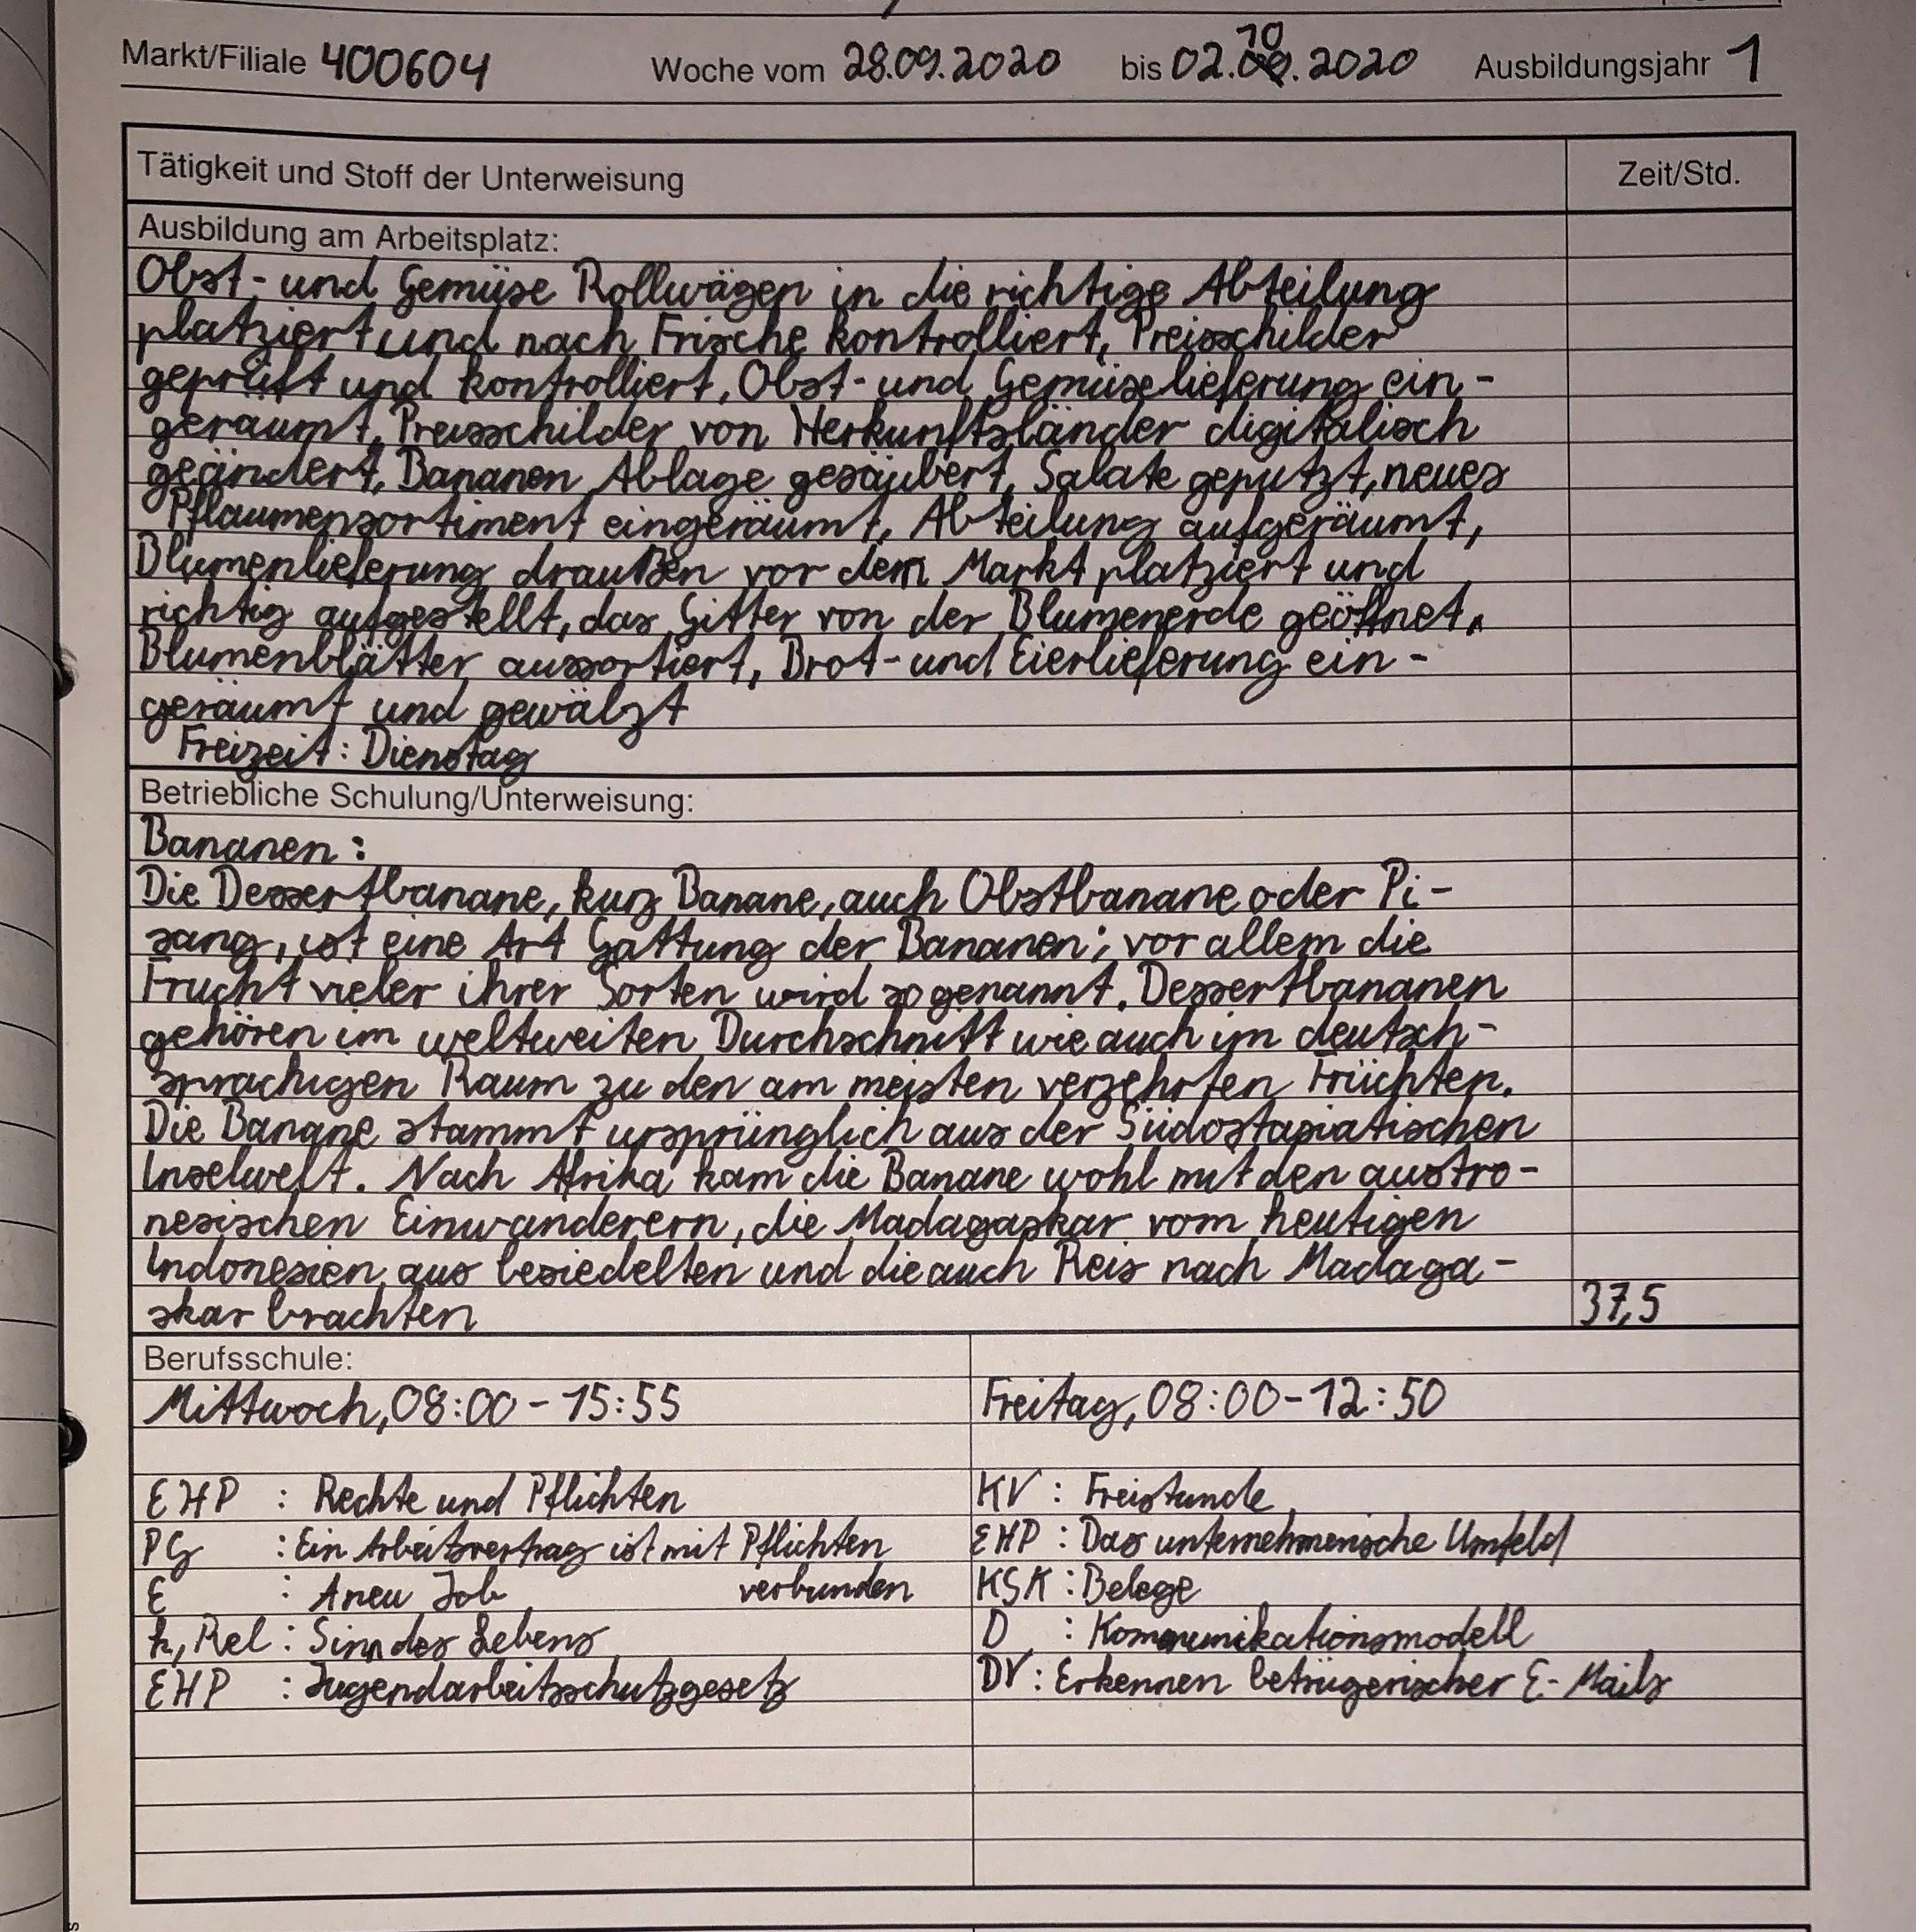 Markt/Filiale 400604 Woche vom 28.09.2020 bis 02.10.2020 Ausbildungsjahr 1
Tätigkeit und Stoff der Unterweisung Zeit/Std.
Ausbildung am Arbeitsplatz:
Obst- und Gemüse Rollwägen in die richtige Abteilung
platziert und nach Frische kontrolliert, Preisschilder
geprüft und kontrolliert, Obst- und Gemüselieferung ein-
geräumt, Preisschilder von Herkunftsländer digitalisch
geändert, Bananen Ablage gesäubert, Salate geputzt, neues
Pflaumensortiment eingeräumt, Abteilung aufgeräumt,
Blumenlieferung draußen vor dem Markt platziert und
richtig aufgestellt, das Gitter von der Blumenerde geöffnet,
Blumenblätter aussortiert, Brot- und Eierlieferung ein-
geräumt und gewälzt
Freizeit: Dienstag
Betriebliche Schulung/Unterweisung:
Bananen:
Die Dessertbanane, kurz Banane, auch Obstbanane oder Pi-
sang, ist eine Art Gattung der Bananen; vor allem die
Frucht vieler ihrer Sorten wird so genannt. Dessertbananen
gehören im weltweiten Durchschnitt wie auch im deutsch-
sprachigen Raum zu den am meisten verzehrten Früchten.
Die Banane stammt ursprünglich aus der Südostasiatischen
Inselwelt. Nach Afrika kam die Banane wohl mit den austro-
nesischen Einwanderern, die Madagaskar vom heutigen
Indonesien aus besiedelten und die auch Reis nach Madaga-
skar brachten 37,5
Berufsschule:
Mittwoch, 08:00 - 15:55 Freitag, 08:00 - 12:50
EHP : Rechte und Pflichten KV : Freistunde
PG : Ein Arbeitsvertrag ist mit Pflichten EHP : Das unternehmerische Umfeld
E : Aneu Job verbunden KSK : Belege
k, Rel : Sinn des Lebens D : Kommunikationsmodell
EHP : Jugendarbeitsschutzgesetz DV : Erkennen betrügerischer E-Mails